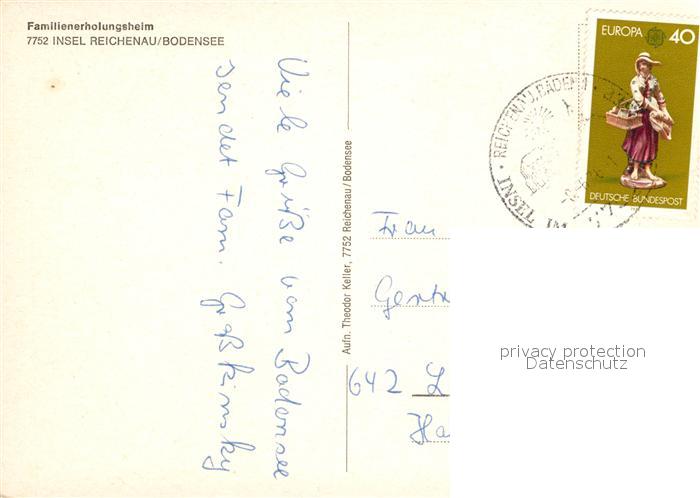 Familienerholungsheim
7752 INSEL REICHENAU/BODENSEE
Viele Grüße vom Bodensee
sendet Fam. Großkinsky
Aufn. Theodor Keller, 7752 Reichenau/Bodensee
EUROPA 40
DEUTSCHE BUNDESPOST
REICHENAU, BADEN 1
INSEL IM
Frau
Gertr
642 L
Ha
privacy protection
Datenschutz